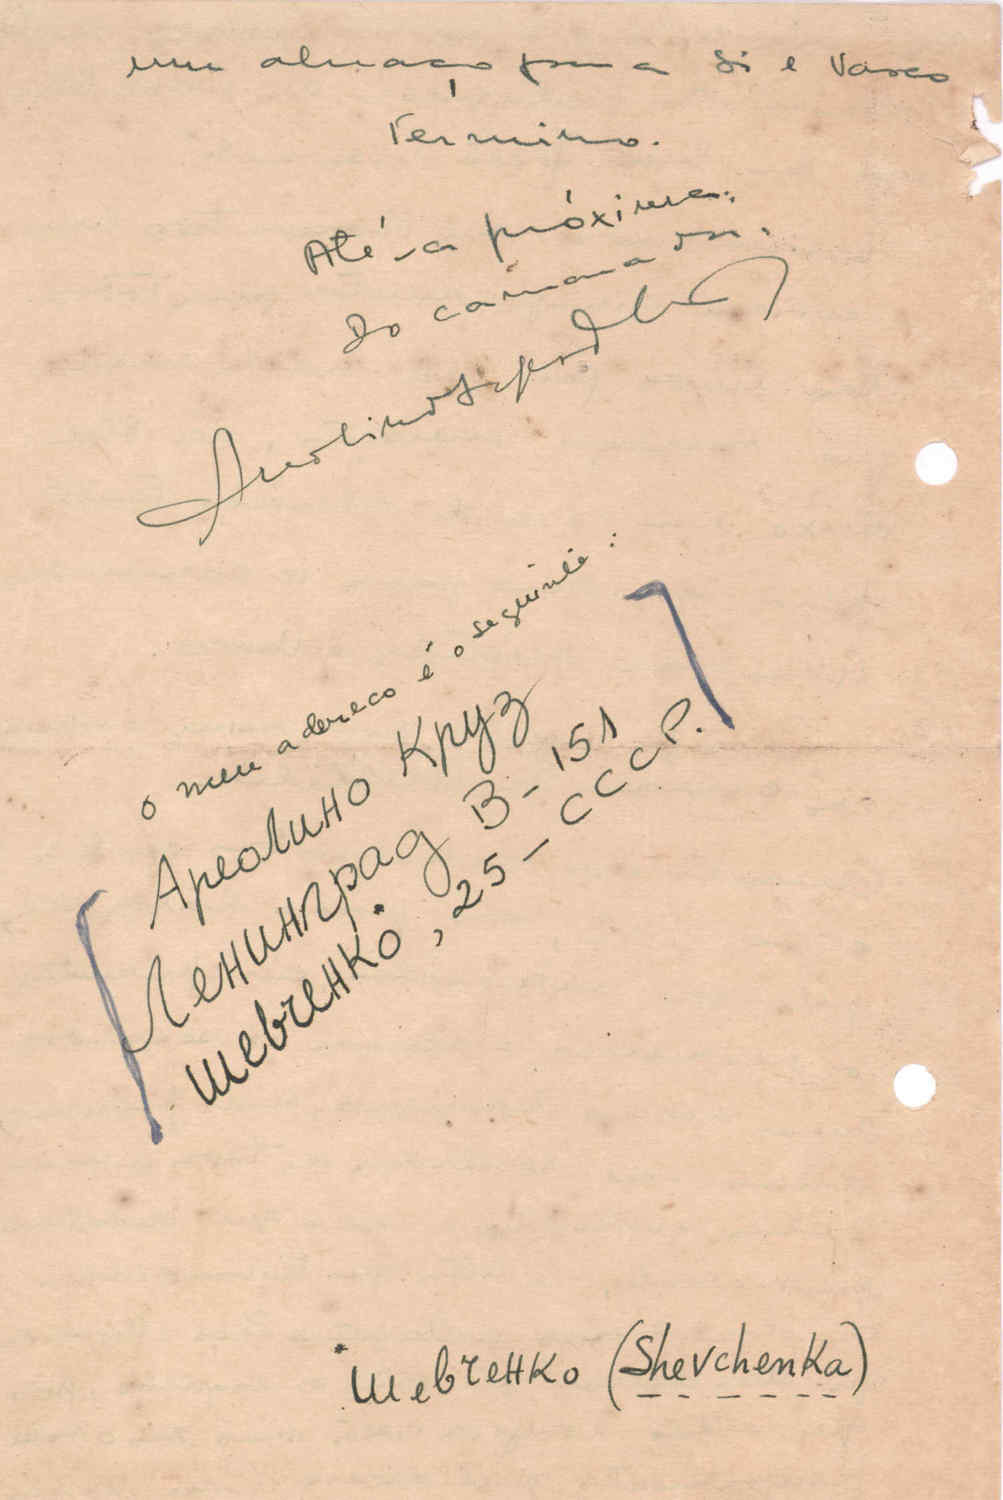 um abraço para si e Vasco
Termino.
Até-a próxima.
Do camarada
o meu adereco é o seguinte:
[Ареолино Круз
Ленинград В-151
Шевченко*, 25-СССР.]
*Шевченко (Shevchenka)